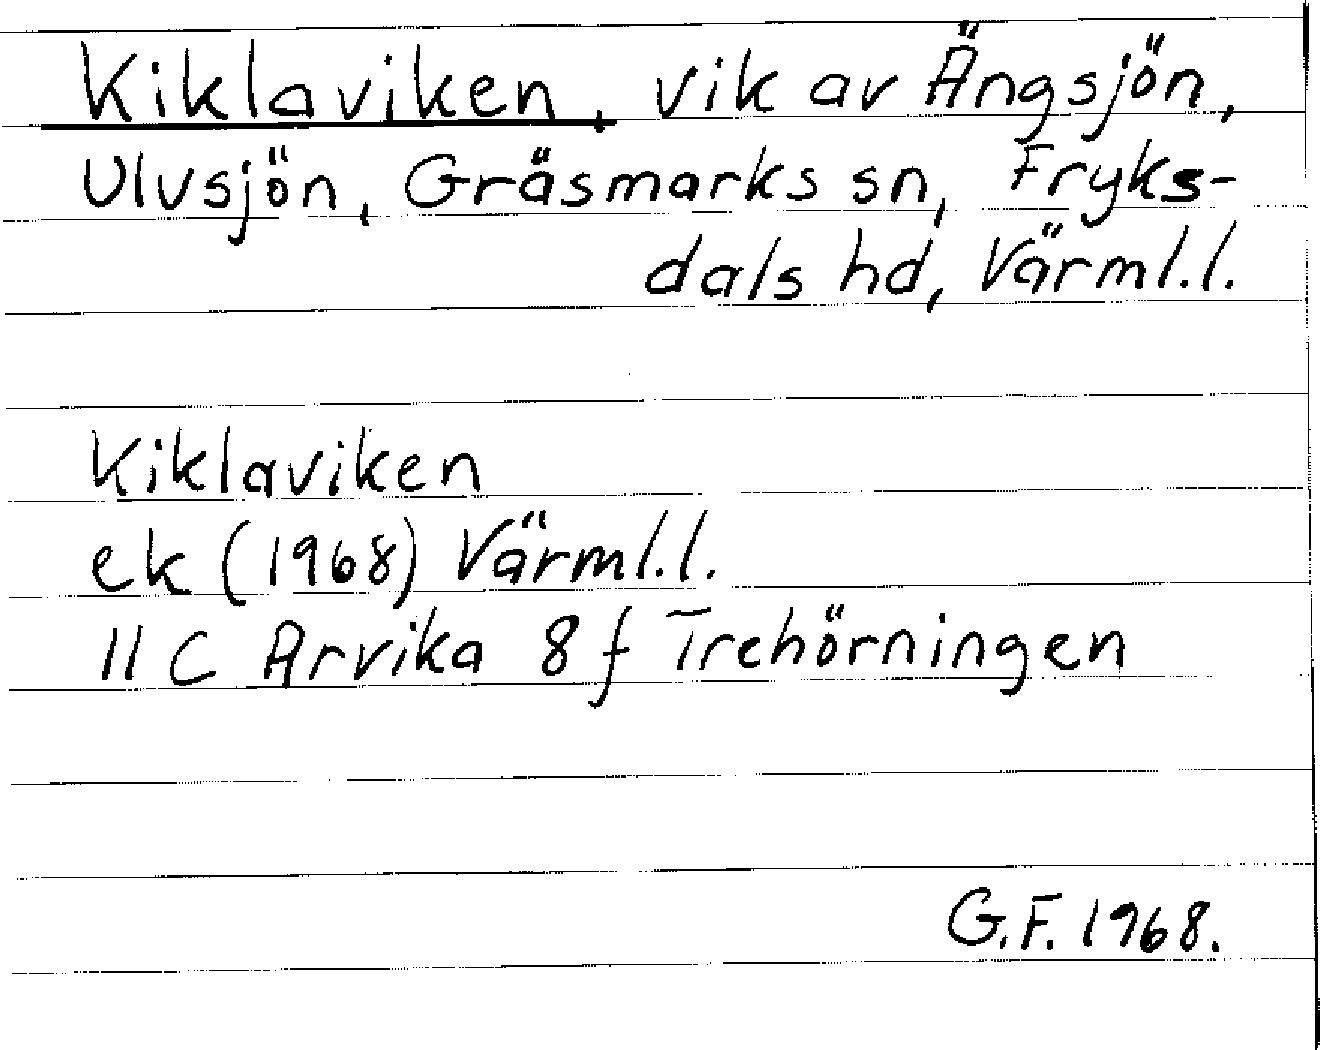 Kiklaviken, vik av Ängsjön,
Ulvsjön, Gräsmarks sn, Fryks-
dals hd, Värml.l.
Kiklaviken
ek (1968) Värml.l.
11 C Arvika 8 f Trehörningen
G.F. 1968.